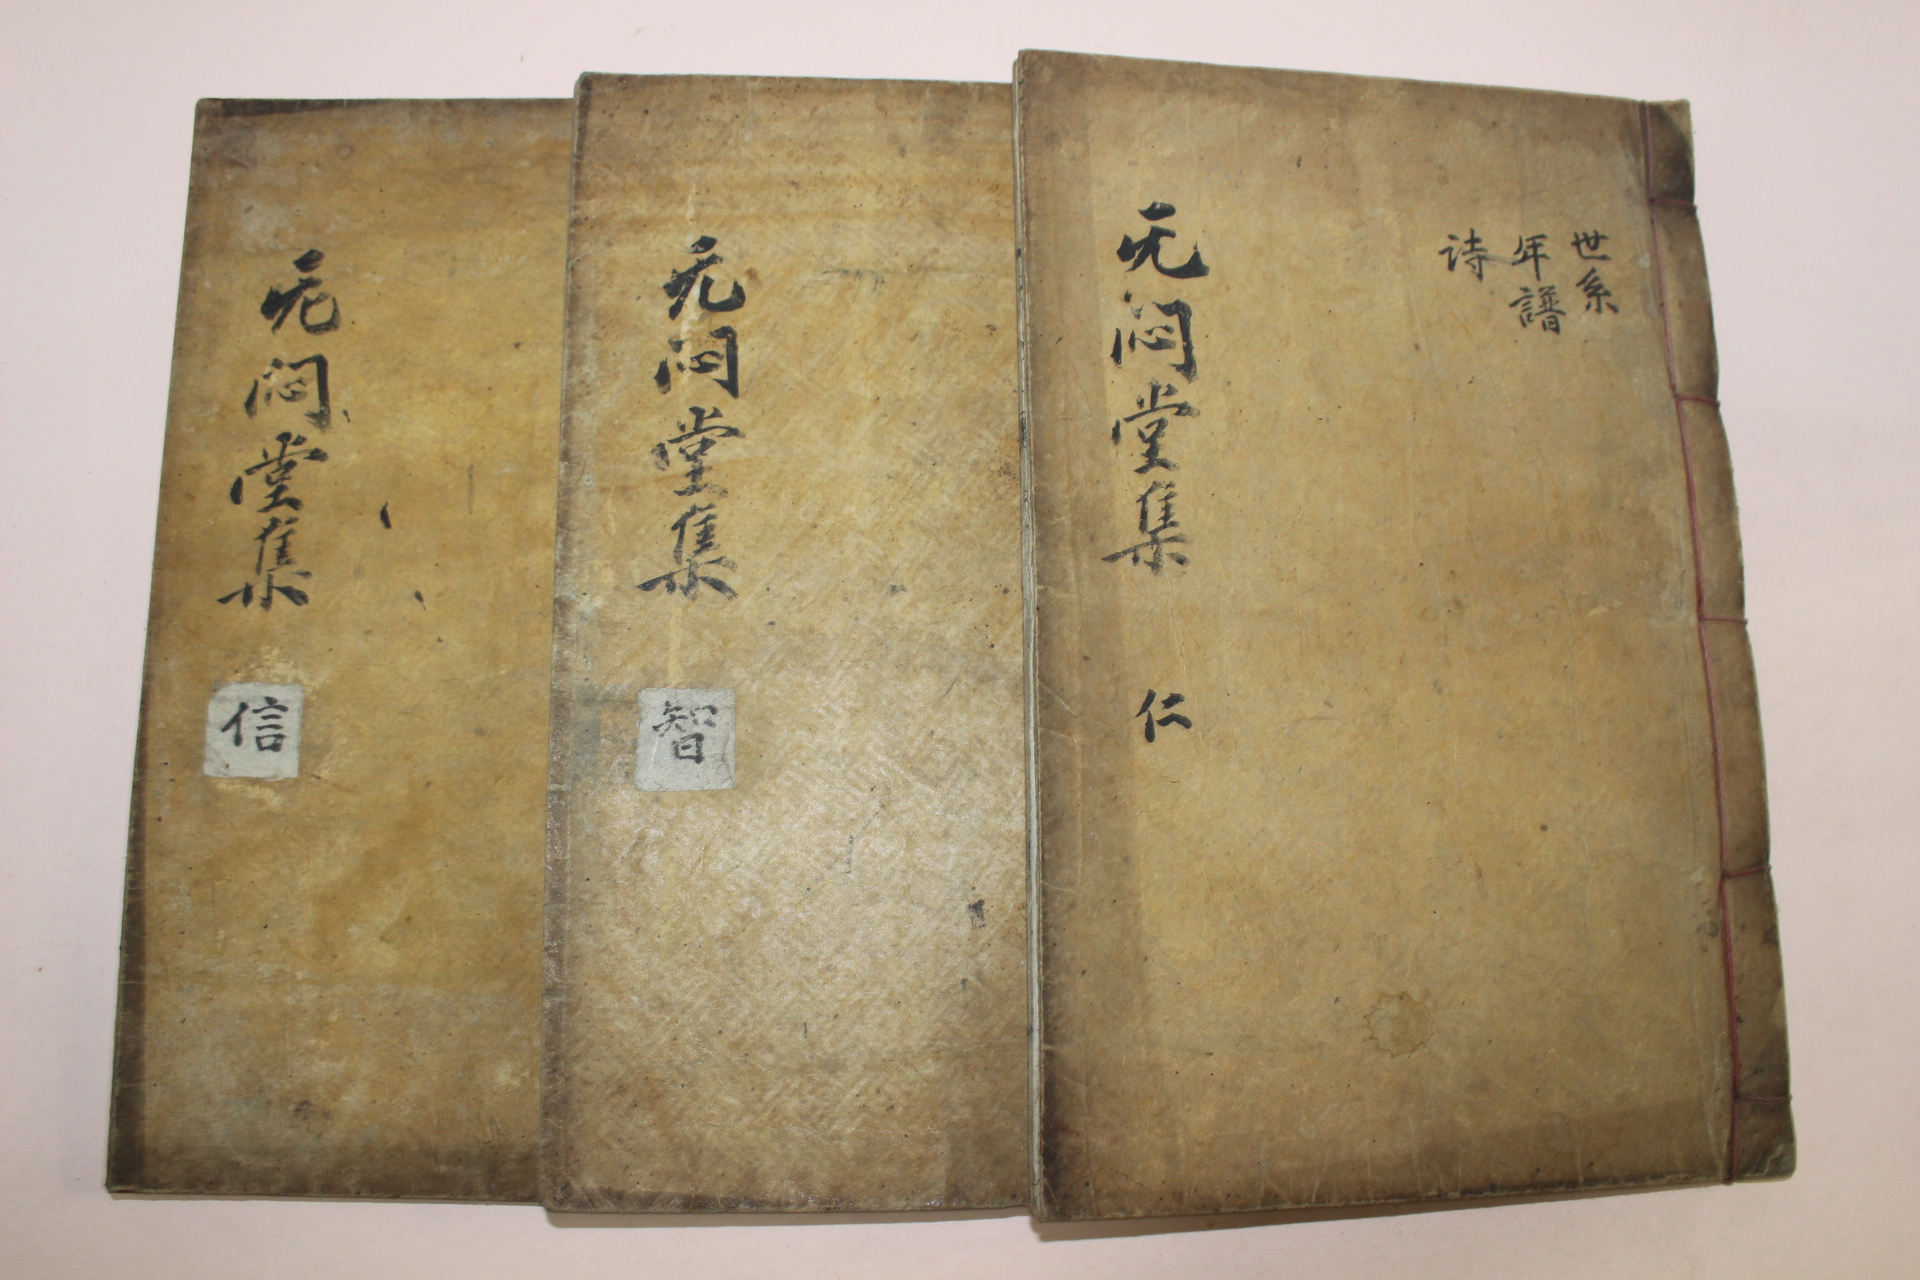 世系
年譜
詩
无悶堂集
仁
无悶堂集
智
无悶堂集
信